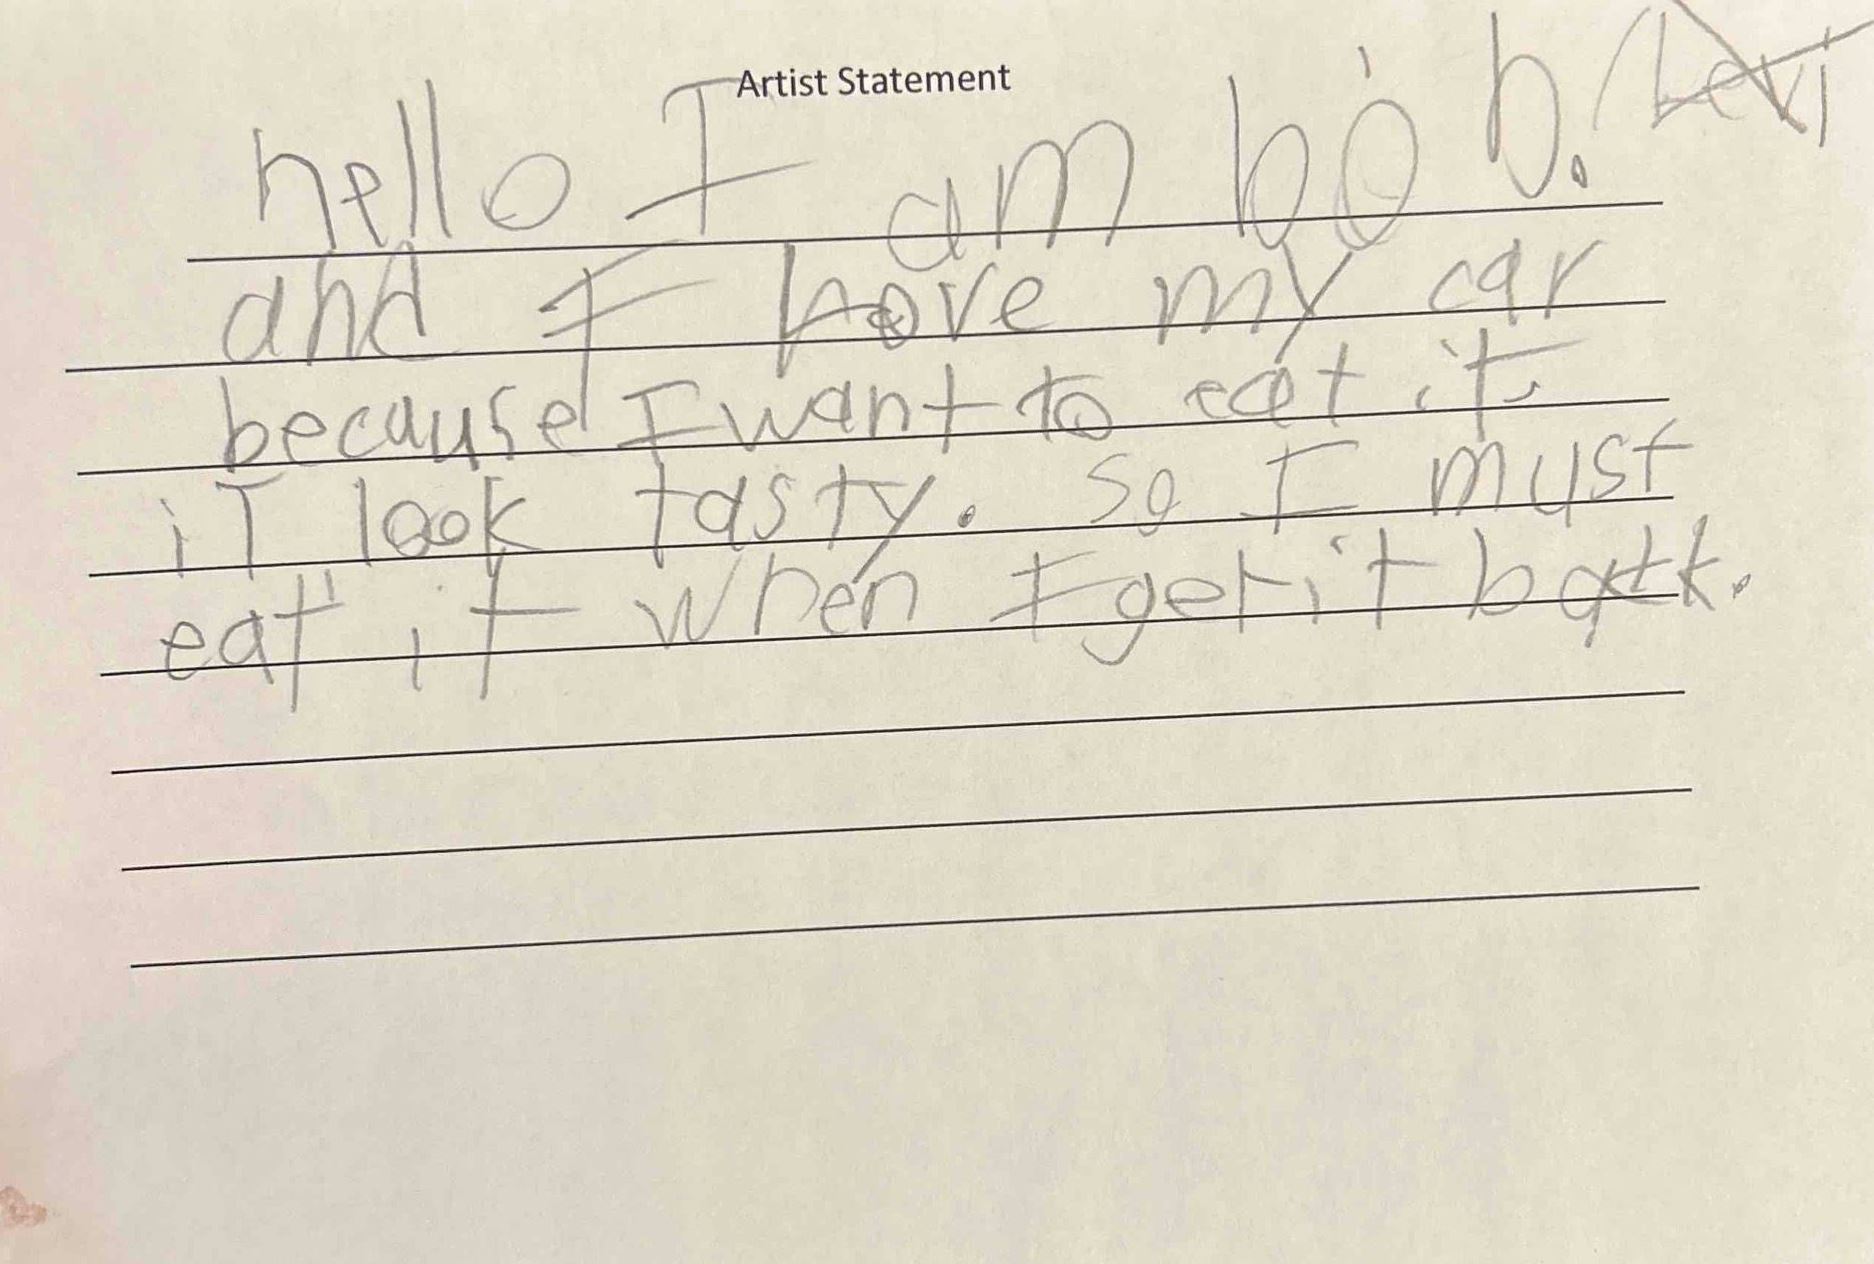 Artist Statement
hello I am bob. Levi
and I love my car
because I want to eat it
iT look tasty. So I must
eat it when I get it back.